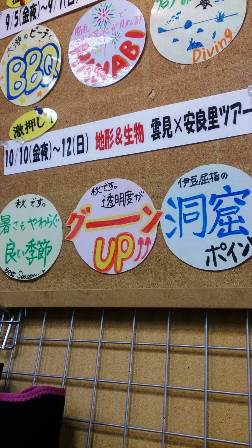 9/5(金夜)~9/7(日)
BBQ
HANABI
Diving
激押し!
10/10(金夜)~12(日) 地形&生物 雲見×安良里ツアー
秋です。
暑さもやわらぐ
良い季節
Best Season
秋です。
透明度が
グーーン
UP↑↑
伊豆屈指の
洞窟
ポイン